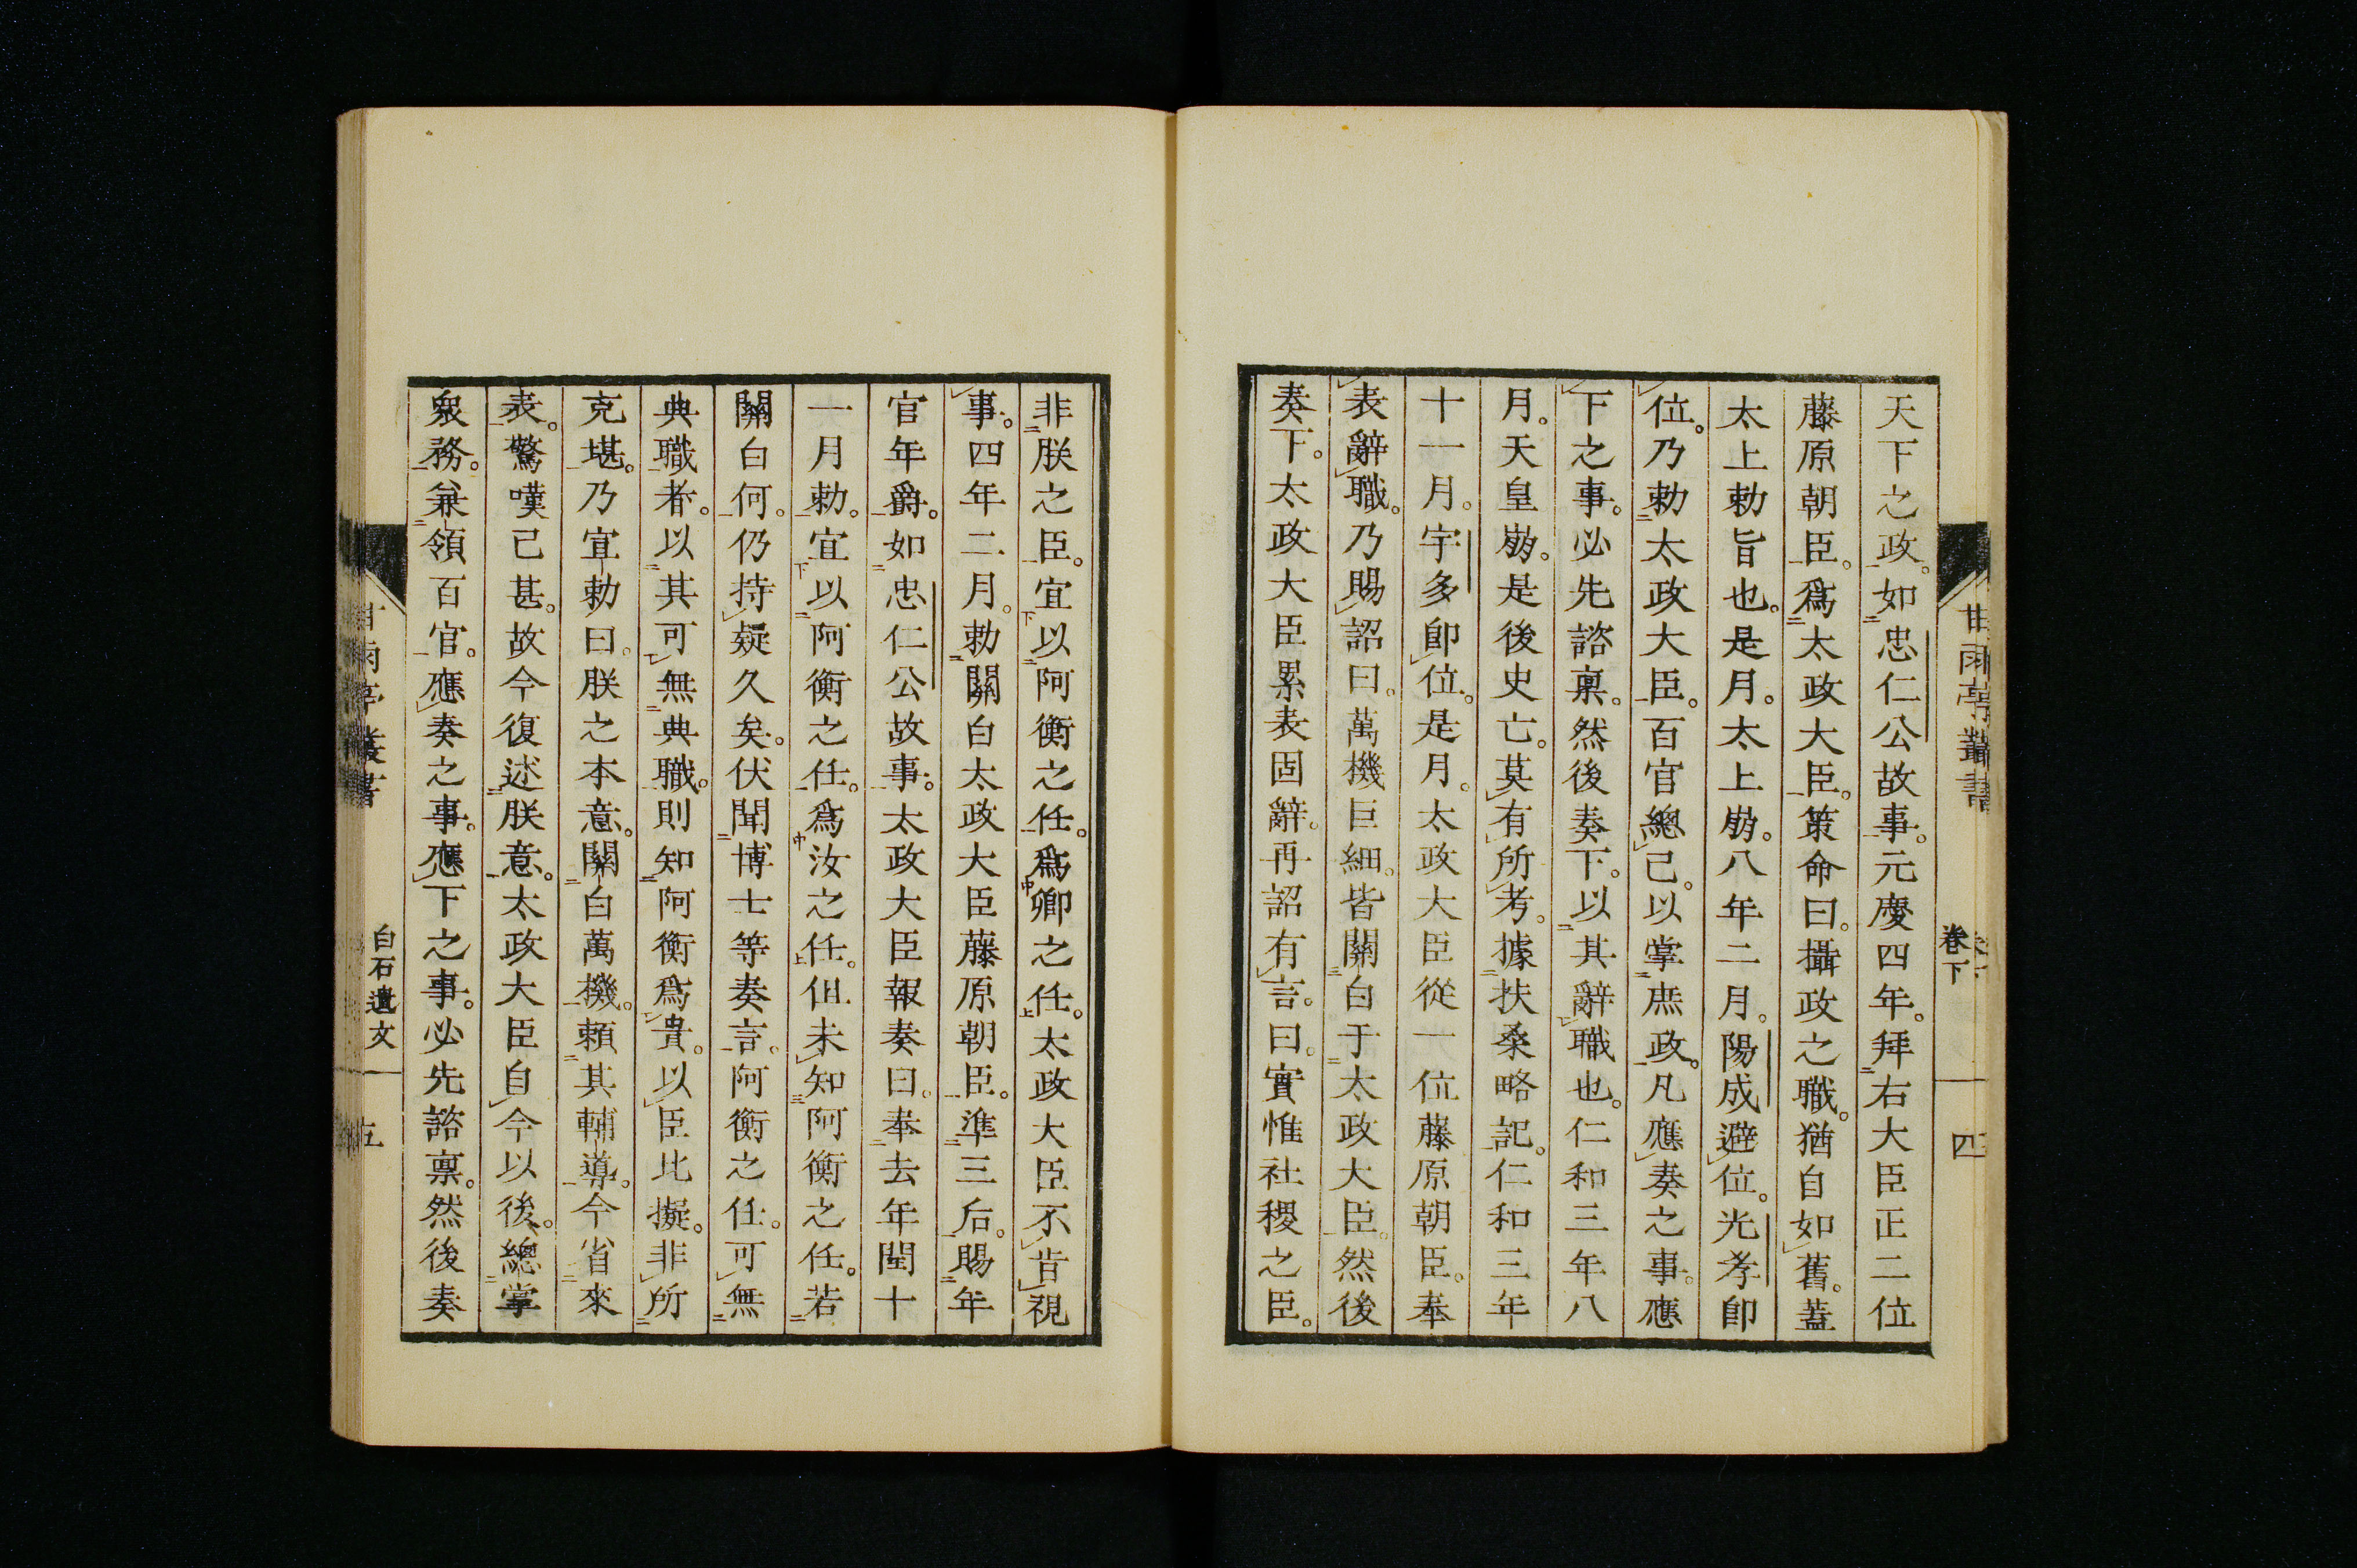 天下之政。如忠仁公故事。元慶四年。拜右大臣正二位
藤原朝臣。爲太政大臣。策命曰。攝政之職。猶自如舊。蓋
太上勅旨也。是月。太上崩。八年二月。陽成避位。光孝卽
位。乃勅太政大臣。百官總己。以掌庶政。凡應奏之事。應
下之事。必先諮稟。然後奏下。以其辭職也。仁和三年八
月。天皇崩。是後史亡。莫有所考。據扶桑略記。仁和三年
十一月。宇多卽位。是月。太政大臣從一位藤原朝臣。奉
表辭職。乃賜詔曰。萬機巨細。皆關白于太政大臣。然後
奏下。太政大臣累表固辭。再詔有言。曰。實惟社稷之臣。
甘雨亭叢書 卷下 四
非朕之臣。宜以阿衡之任。爲卿之任。太政大臣不肯視
事。四年二月。勅關白太政大臣藤原朝臣。準三后。賜年
官年爵。如忠仁公故事。太政大臣報奏曰。奉去年閏十
一月勅。宜以阿衡之任。爲汝之任。但未知阿衡之任。若
關白何。仍持疑久矣。伏聞博士等奏言。阿衡之任。可無
典職者。以其可無典職。則知阿衡爲貴。以臣比擬。非所
克堪。乃宜勅曰。朕之本意。關白萬機。賴其輔導。今省來
表。驚嘆已甚。故今復述朕意。太政大臣自今以後。總掌
衆務。兼領百官。應奏之事。應下之事。必先諮稟。然後奏
甘雨亭叢書 白石遺文 五